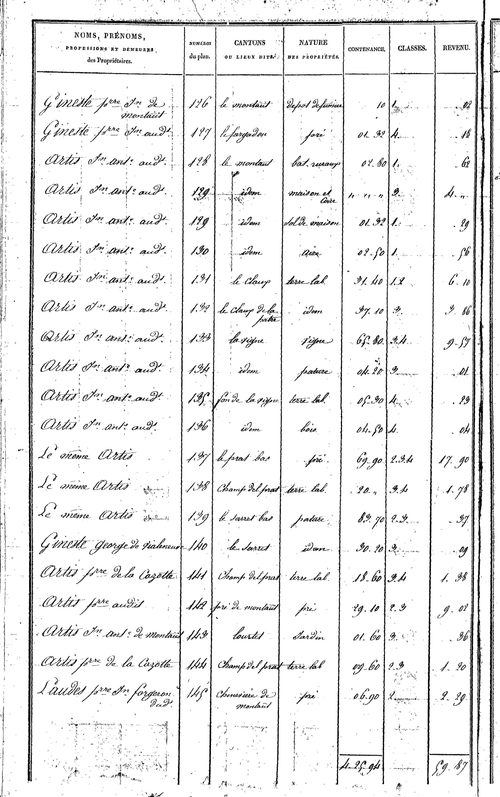 NOMS, PRÉNOMS, PROFESSIONS ET DEMEURES des Propriétaires. NUMÉROS du plan. CANTONS OU LIEUX DITS NATURE DES PROPRIÉTÉS. CONTENANCE. CLASSES. REVENU.
Gineste pre Jn de montaut 126 le montaut 10 1. 02
Gineste pre Jn audt. 127 le fargadou pré 01. 32 4. 18
Artis Jn ant. audt. 128 le montaut bat. ruraux 02. 80 1. 62
Artis Jn ant. audt. 129 idem maison et " " " 3. 4. "
Artis Jn ant. audt. 129 idem sol de maison 01. 32 1. 29
Artis Jn ant. audt. 130 idem aire 02. 50 1. 56
Artis Jn ant. audt. 131 le claux terre lab. 31. 40 1.2 6. 10
Artis Jn ant. audt. 132 le claux de la idem 37. 10 3. 3. 86
Artis Jn ant. audt. 133 la vigne vigne 65. 80 3.4 9. 57
Artis Jn ant. audt. 134 idem pature 04. 20 3. 01
Artis Jn ant. audt. 135 fon de la vigne terre lab. 05. 30 4. 23
Artis Jn ant. audt. 136 idem bois 04. 50 4. 04
Le même Artis 137 le prat bas pré 69. 90 2.3.4 17. 90
Le même Artis 138 Champ del prat terre lab. 20. " 3.4 1. 78
Le même Artis 139 le sarret bas pature 83. 70 2.3. 37
Gineste george de 140 le sarret idem 30. 20 3. 09
Artis pre de la Cazotte 141 Champ del prat terre lab. 18. 60 3.4 1. 38
Artis pre audit 142 pré de montaut pré 29. 10 2.3 9. 02
Artis Jn ant. de montaut 143 lourtet Jardin 01. 60 3. 36
Artis pre de la Cazotte 144 Champ del prat terre lab 09. 60 2.3 1. 20
Laudet pre Jn forgeron dudt. 145 Cheneviere de montaut pré 06. 90 2. 2. 29
4. 25. 94 59. 87